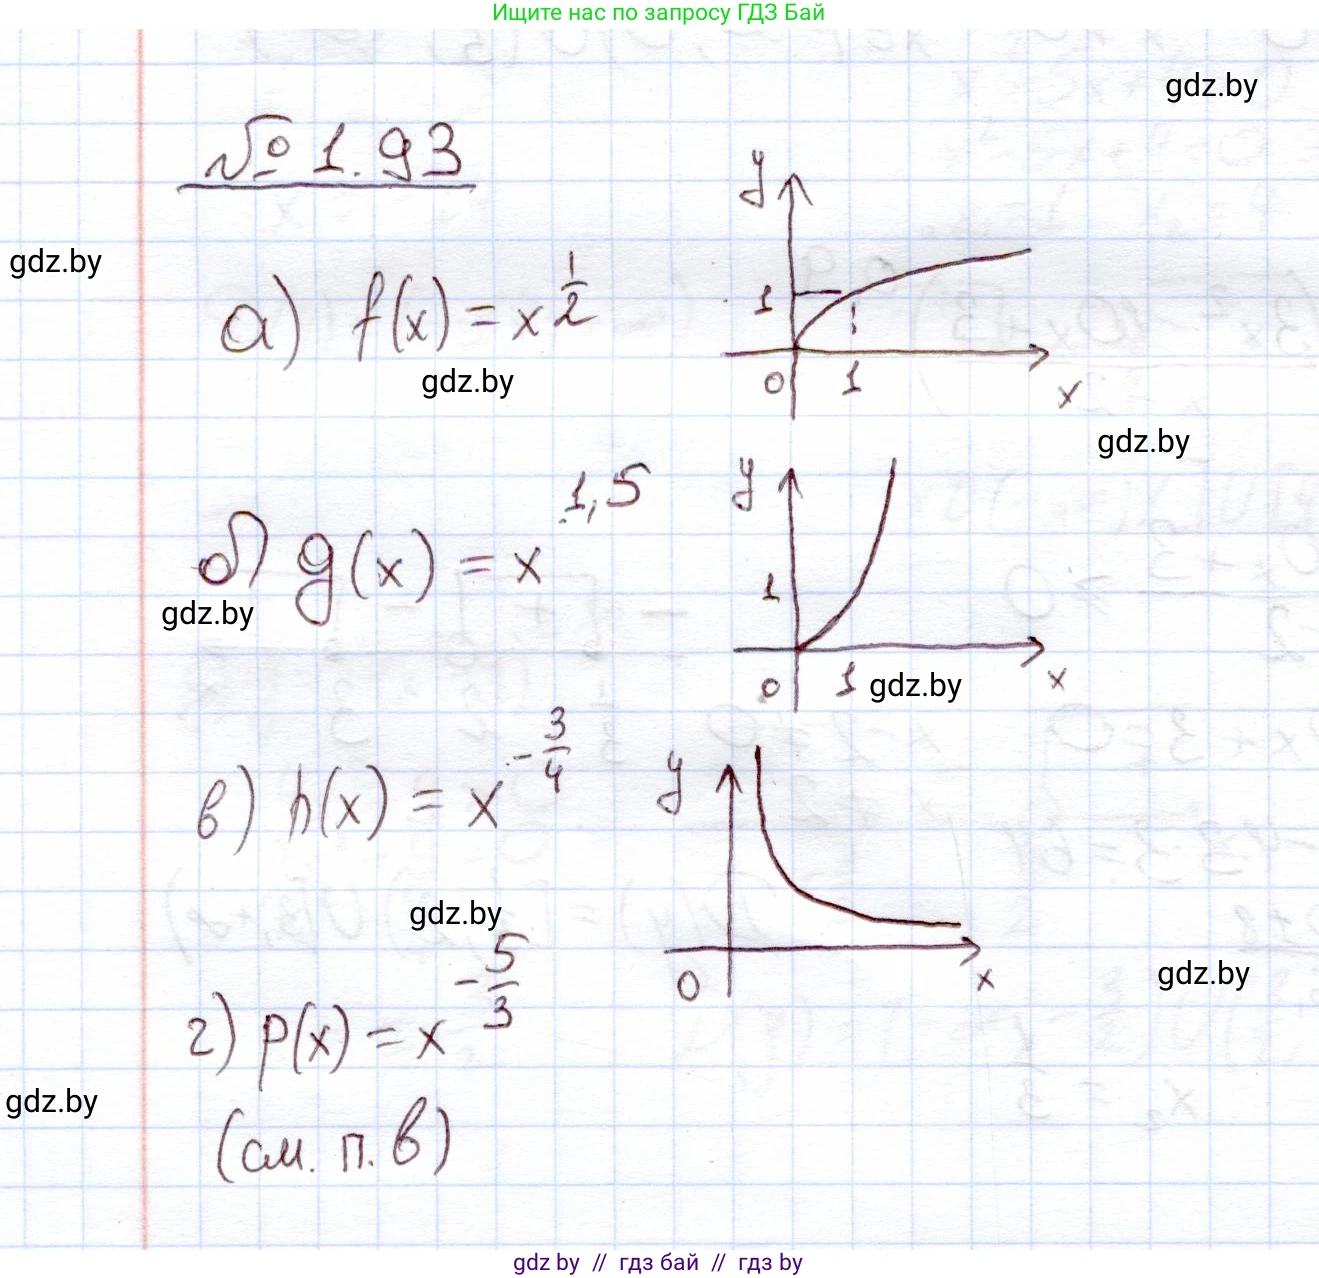 Ищите нас по запросу ГДЗ Бай
gdz.by
№ 1.93
y
gdz.by
а) f(x) = x^{\frac{1}{2}}
1
0 1 x
gdz.by
gdz.by
y
б) g(x) = x^{1,5}
1
gdz.by
0 1 x
gdz.by
в) h(x) = x^{-\frac{3}{4}}
y
gdz.by
0 x
gdz.by
г) p(x) = x^{-\frac{5}{3}}
gdz.by
(см. п. в)
gdz by // гдз бай // гдз by